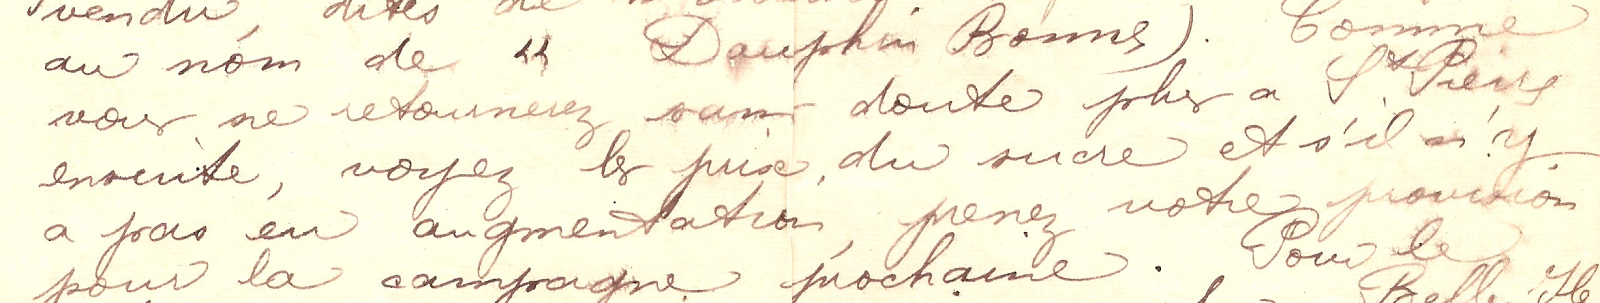 vendu, dites de
au nom de " Dauphin Bonnes). Comme
vous ne retournerez sans doute plus a St Pierre
ensuite, voyez les prix du sucre et s'il n'y
a pas eu augmentation, prenez votre provision
pour la campagne prochaine. Pour le
Belle Ile